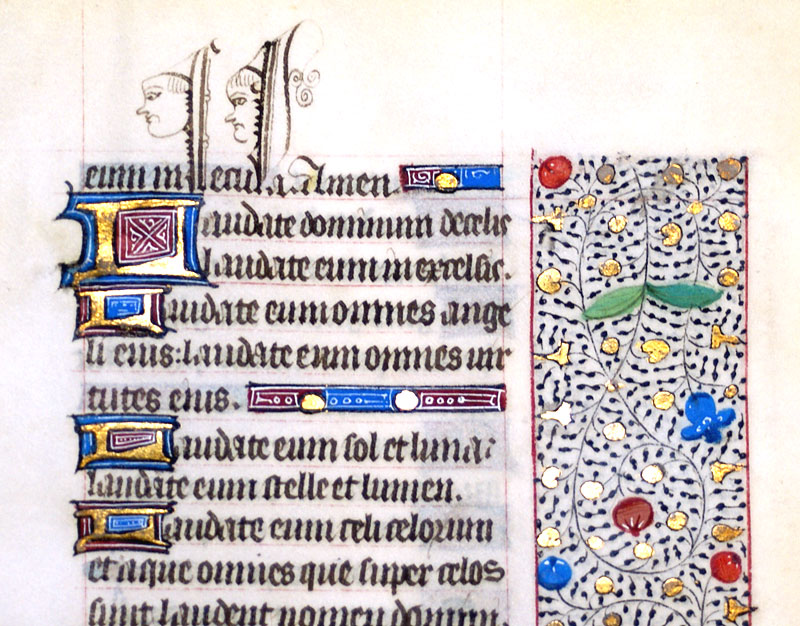 eum in secula. Amen.
Laudate dominum de celis
laudate eum in excelsis.
Laudate eum omnes ange
li eius: laudate eum omnes uir
tutes eius.
Laudate eum sol et luna:
laudate eum stelle et lumen.
Laudate eum celi celorum
et aque omnes que super celos
sunt laudent nomen domini.